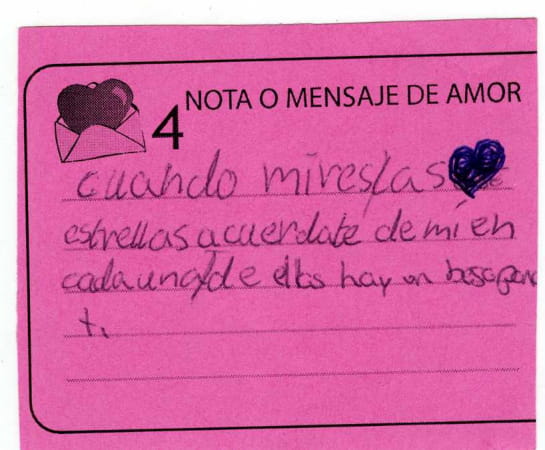 4 NOTA O MENSAJE DE AMOR
cuando mires/as
estrellas acuerdate de mi en
cada una/de ellas hay un beso para
ti